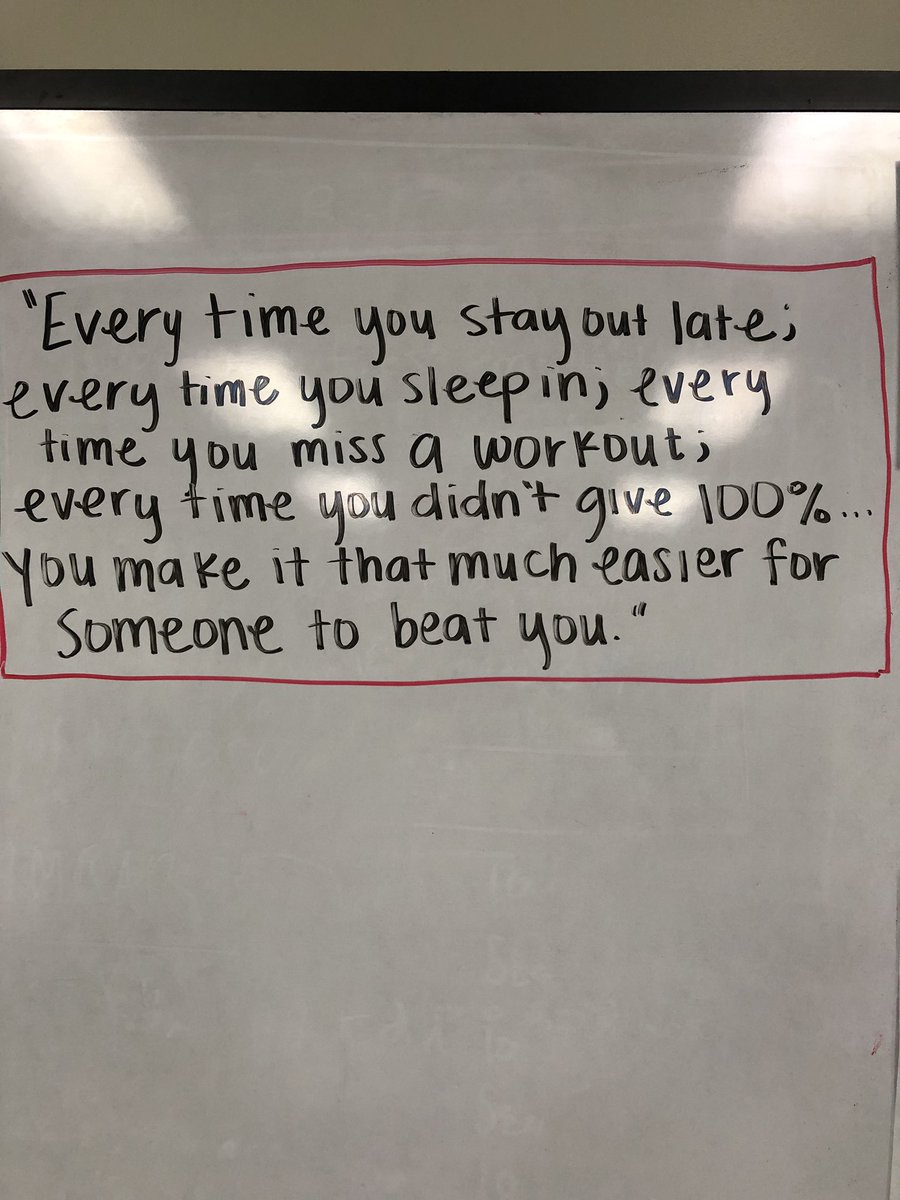 "Every time you stay out late;
every time you sleep in; every
time you miss a workout;
every time you didn't give 100%...
you make it that much easier for
someone to beat you."